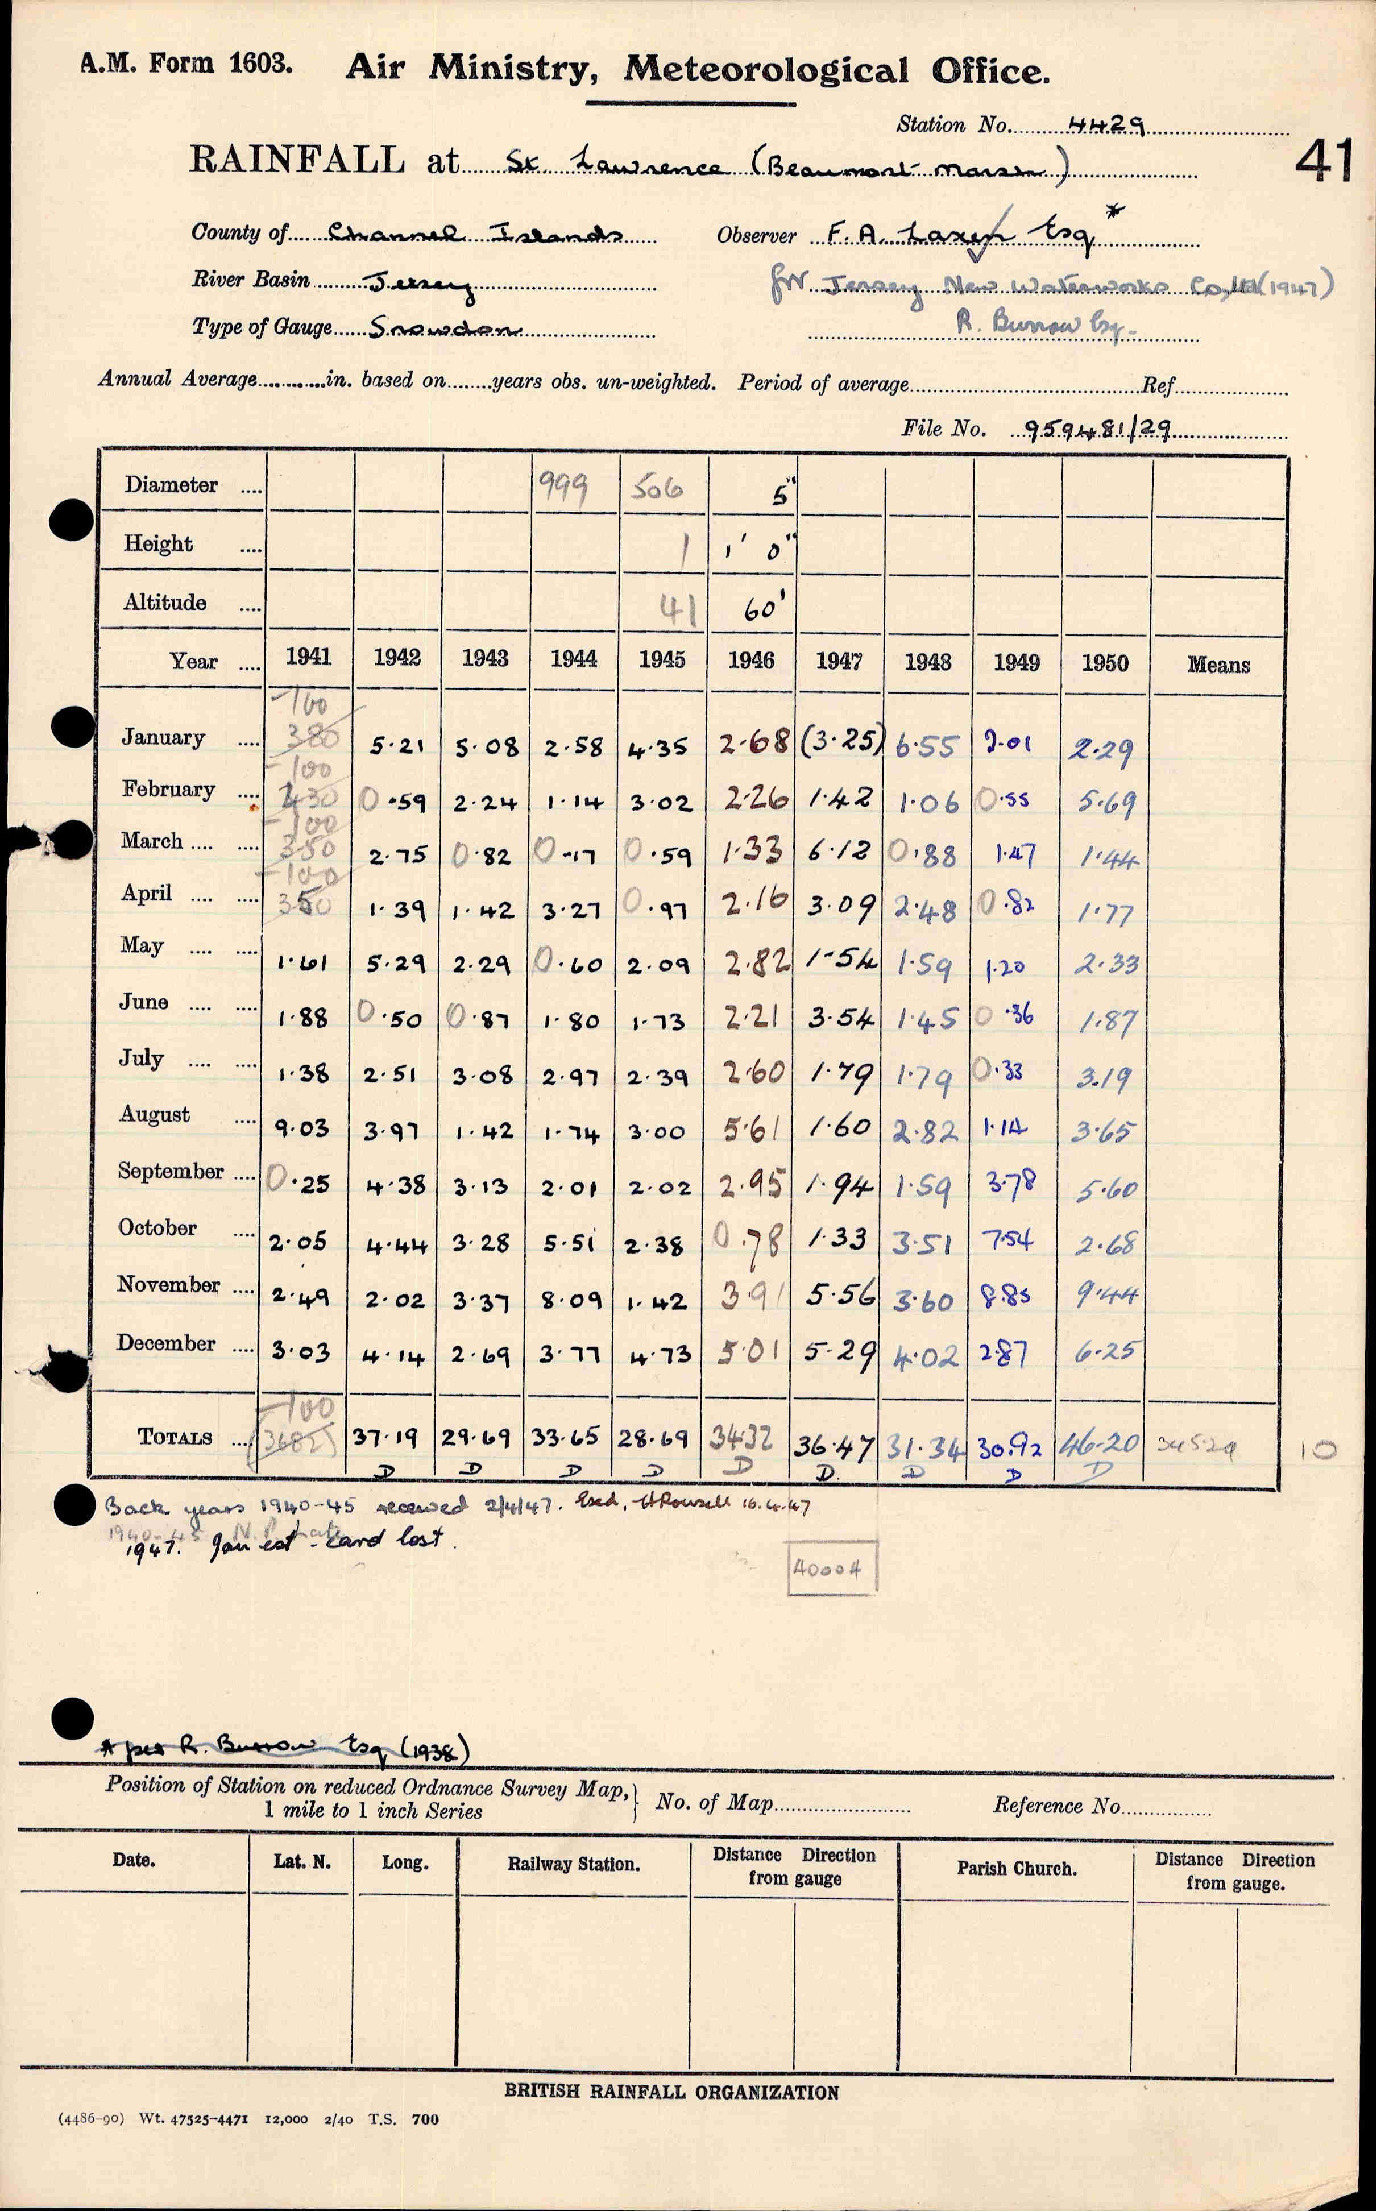 A.M. Form 1603. Air Ministry, Meteorological Office.
Station No. 4429
RAINFALL at St Lawrence (Beaumont Marsh) 41
County of Channel Islands Observer F. A. Laxen Esq *
River Basin Jersey for Jersey New Waterworks Co, Ltd (1947)
Type of Gauge Snowdon R. Burrow Esq.
Annual Average............in. based on........years obs. un-weighted. Period of average.............Ref............
File No. 959481/29
Diameter .... 999 506 5"
Height .... 1 1' 0"
Altitude .... 41 60'
Year .... 1941 1942 1943 1944 1945 1946 1947 1948 1949 1950 Means
-100
January .... 380 5.21 5.08 2.58 4.35 2.68 (3.25) 6.55 2.01 2.29
-100
February .... 430 0.59 2.24 1.14 3.02 2.26 1.42 1.06 0.55 5.69
-100
March .... .... 350 2.75 0.82 0.17 0.59 1.33 6.12 0.88 1.47 1.44
-100
April .... .... 350 1.39 1.42 3.27 0.97 2.16 3.09 2.48 0.82 1.77
May .... .... 1.61 5.29 2.29 0.60 2.09 2.82 1.54 1.59 1.20 2.33
June .... .... 1.88 0.50 0.87 1.80 1.73 2.21 3.54 1.45 0.36 1.87
July .... .... 1.38 2.51 3.08 2.97 2.39 2.60 1.79 1.79 0.33 3.19
August .... 9.03 3.97 1.42 1.74 3.00 5.61 1.60 2.82 1.14 3.65
September .... 0.25 4.38 3.13 2.01 2.02 2.95 1.94 1.59 3.78 5.60
October .... 2.05 4.44 3.28 5.51 2.38 0.78 1.33 3.51 7.54 2.68
November .... 2.49 2.02 3.37 8.09 1.42 3.91 5.56 3.60 8.85 9.44
December .... 3.03 4.14 2.69 3.77 4.73 5.01 5.29 4.02 2.87 6.25
-100
TOTALS .... (3682) 37.19 29.69 33.65 28.69 34.32 36.47 31.34 30.92 46.20 34529 10
D D D D D D. D D D
Back years 1940-45 received 2/4/47. Exed, 16.4.47
1940-45
1947. Jan est - card lost.
40004
* per R. Burrow Esq (1938)
Position of Station on reduced Ordnance Survey Map, 1 mile to 1 inch Series } No. of Map............ Reference No............
Date. Lat. N. Long. Railway Station. Distance Direction from gauge Parish Church. Distance Direction from gauge.
BRITISH RAINFALL ORGANIZATION
(4486-90) Wt. 47525-4471 12,000 2/40 T.S. 700